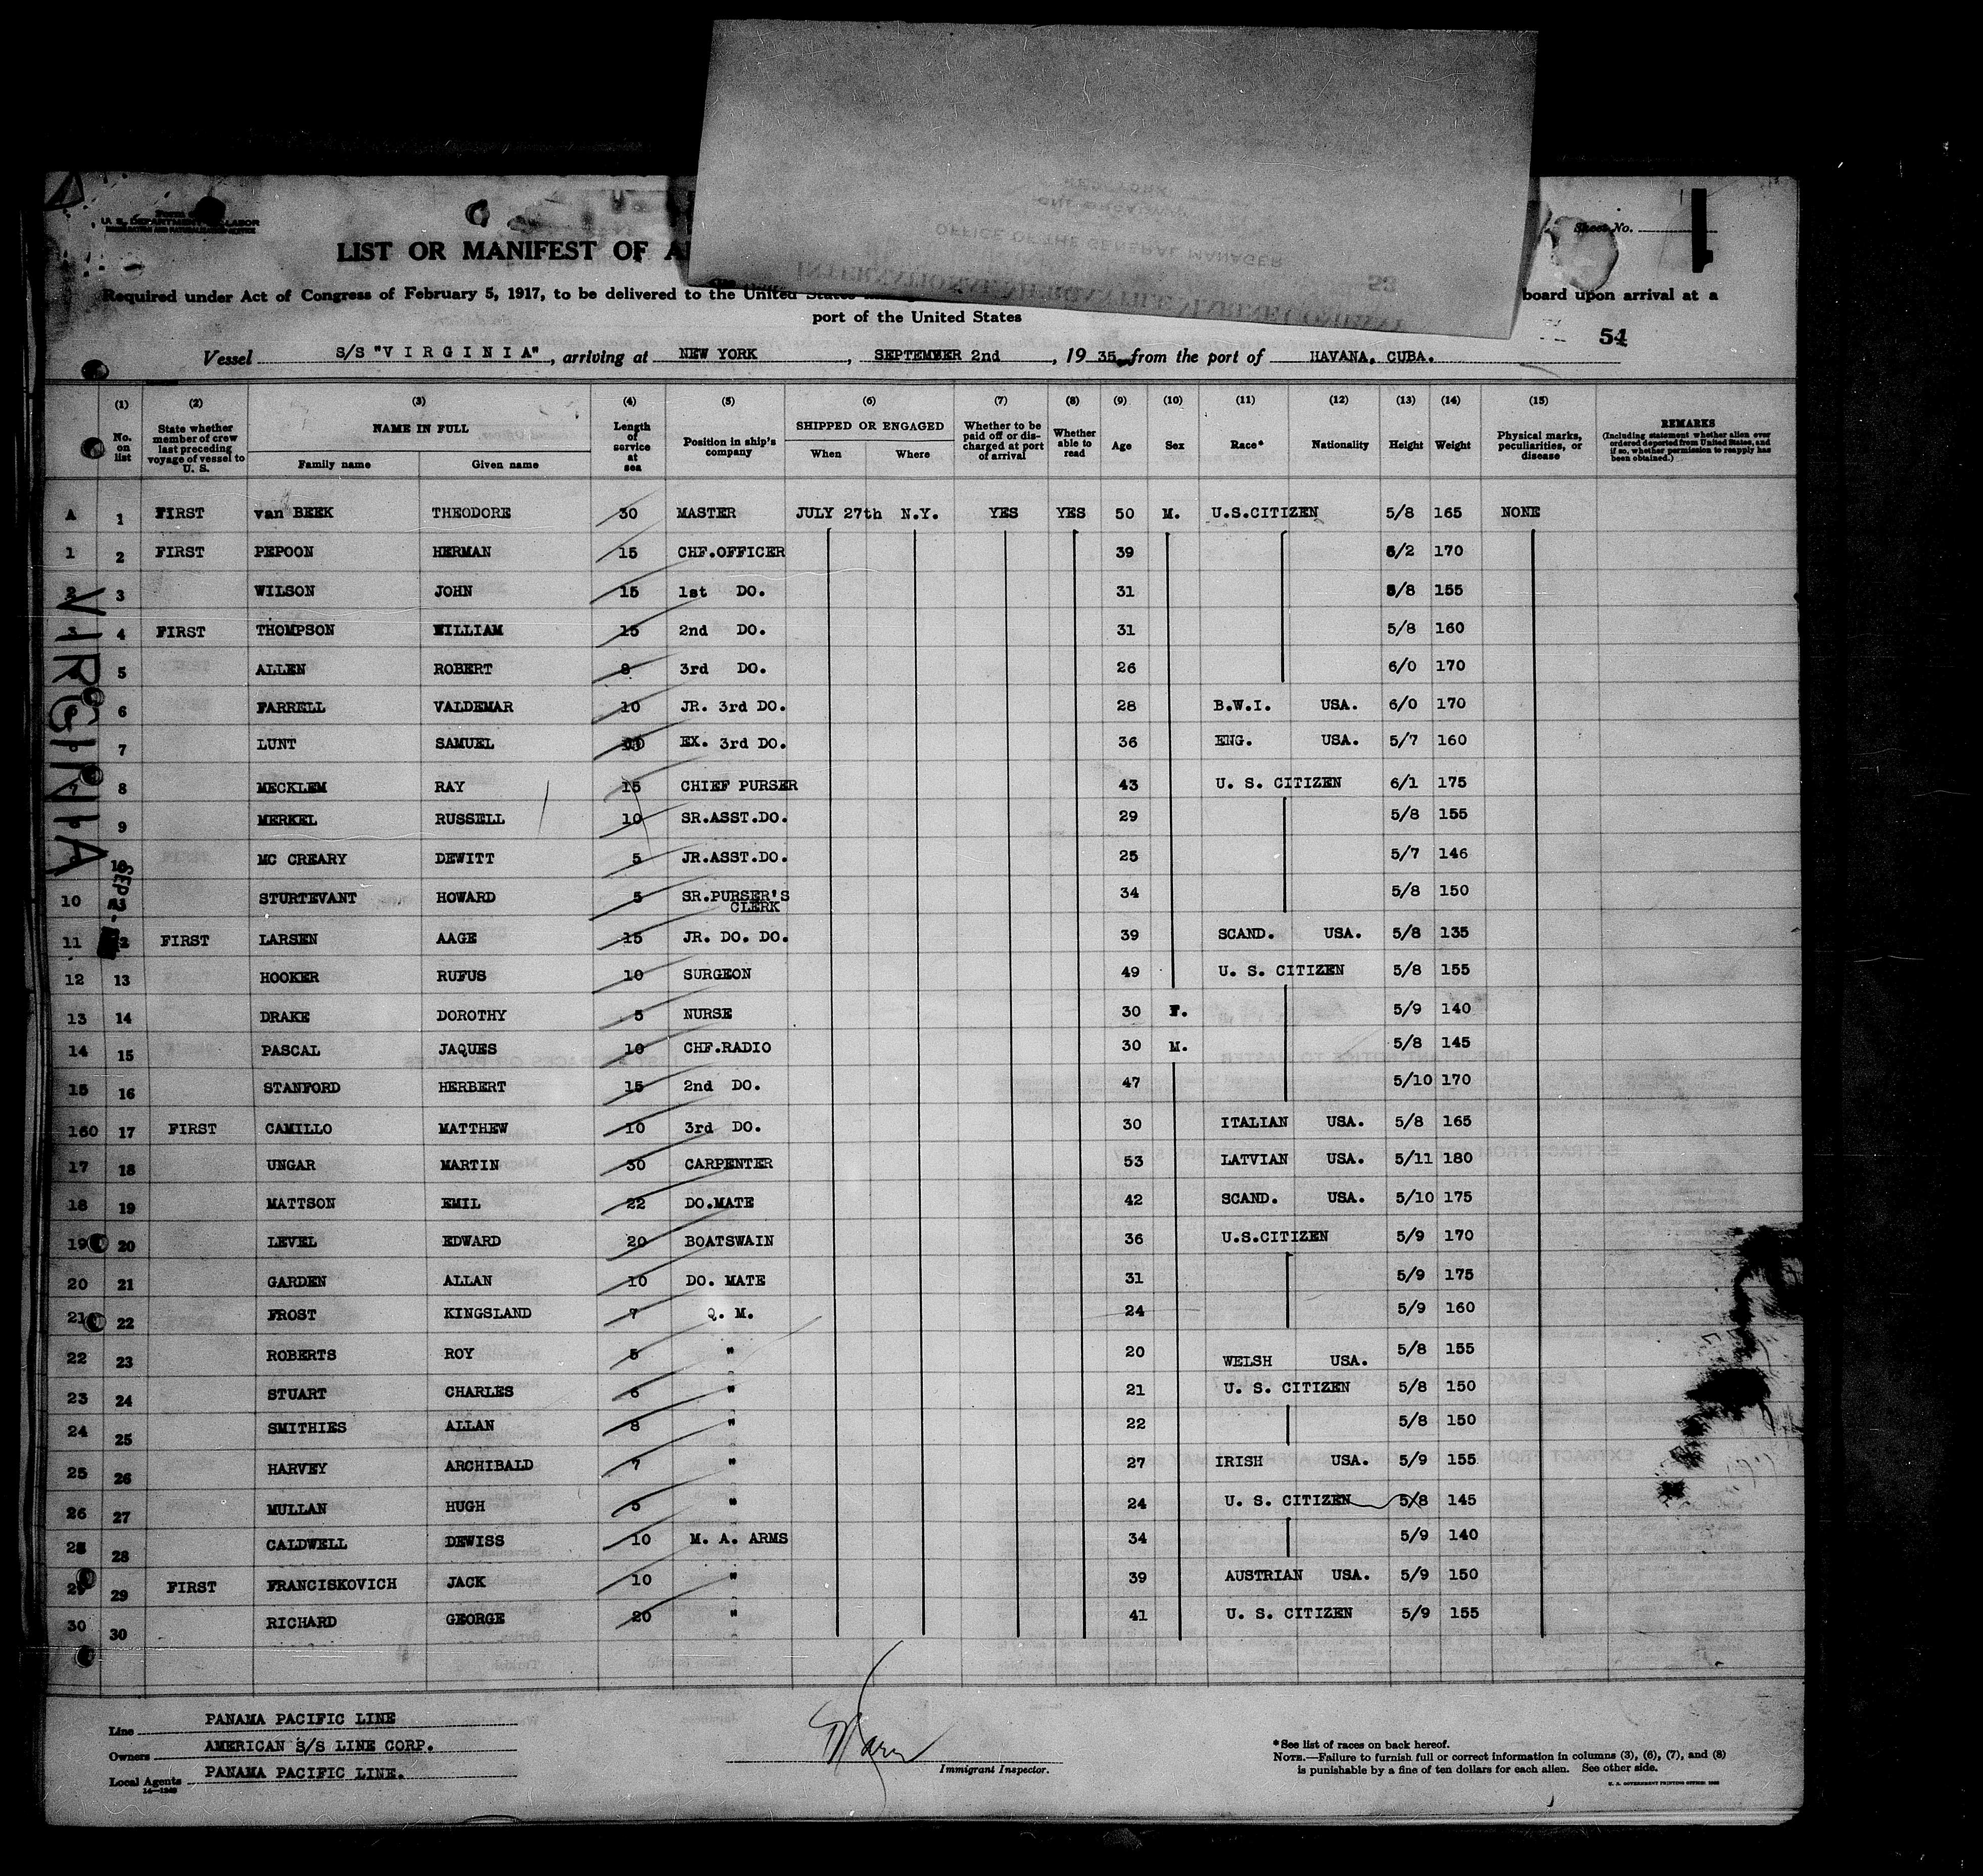 U. S. DEPARTMENT OF LABOR
Sheet No. 1
LIST OR MANIFEST OF
Required under Act of Congress of February 5, 1917, to be delivered to the United States board upon arrival at a
port of the United States
OFFICE OF THE GENERAL MANAGER
INTERNATIONAL MERCANTILE MARINE COMPANY
53
54
Vessel S/S "VIRGINIA", arriving at NEW YORK, SEPTEMBER 2nd, 1935, from the port of HAVANA, CUBA.
(1) (2) (3) (4) (5) (6) (7) (8) (9) (10) (11) (12) (13) (14) (15)
No. on list | State whether member of crew last preceding voyage of vessel to U. S. | NAME IN FULL Family name Given name | Length of service at sea | Position in ship's company | SHIPPED OR ENGAGED When Where | Whether to be paid off or discharged at port of arrival | Whether able to read | Age | Sex | Race* | Nationality | Height | Weight | Physical marks, peculiarities, or disease | REMARKS (Including statement whether alien ever ordered deported from United States, and if so, whether permission to reapply has been obtained.)
A 1 FIRST van BEEK THEODORE 30 MASTER JULY 27th N.Y. YES YES 50 M. U.S.CITIZEN 5/8 165 NONE
1 2 FIRST PEPOON HERMAN 15 CHF.OFFICER 39 6/2 170
2 3 WILSON JOHN 15 1st DO. 31 5/8 155
3 4 FIRST THOMPSON WILLIAM 15 2nd DO. 31 5/8 160
5 ALLEN ROBERT 8 3rd DO. 26 6/0 170
6 FARRELL VALDEMAR 10 JR. 3rd DO. 28 B.W.I. USA. 6/0 170
7 LUNT SAMUEL EX. 3rd DO. 36 ENG. USA. 5/7 160
7 8 MECKLEM RAY 15 CHIEF PURSER 43 U. S. CITIZEN 6/1 175
9 MERKEL RUSSELL 10 SR.ASST.DO. 29 5/8 155
10 MC CREARY DEWITT 5 JR.ASST.DO. 25 5/7 146
10 STURTEVANT HOWARD 5 SR.PURSER'S CLERK 34 5/8 150
11 12 FIRST LARSEN AAGE 15 JR. DO. DO. 39 SCAND. USA. 5/8 135
12 13 HOOKER RUFUS 10 SURGEON 49 U. S. CITIZEN 5/8 155
13 14 DRAKE DOROTHY 5 NURSE 30 F. 5/9 140
14 15 PASCAL JAQUES 10 CHF.RADIO 30 M. 5/8 145
15 16 STANFORD HERBERT 15 2nd DO. 47 5/10 170
160 17 FIRST CAMILLO MATTHEW 10 3rd DO. 30 ITALIAN USA. 5/8 165
17 18 UNGAR MARTIN 30 CARPENTER 53 LATVIAN USA. 5/11 180
18 19 MATTSON EMIL 22 DO.MATE 42 SCAND. USA. 5/10 175
19 20 LEVEL EDWARD 20 BOATSWAIN 36 U.S.CITIZEN 5/9 170
20 21 GARDEN ALLAN 10 DO. MATE 31 5/9 175
21 22 FROST KINGSLAND 7 Q. M. 24 5/9 160
22 23 ROBERTS ROY 5 " 20 WELSH USA. 5/8 155
23 24 STUART CHARLES 6 " 21 U. S. CITIZEN 5/8 150
24 25 SMITHIES ALLAN 8 " 22 5/8 150
25 26 HARVEY ARCHIBALD 7 " 27 IRISH USA. 5/9 155
26 27 MULLAN HUGH 5 " 24 U. S. CITIZEN 5/8 145
28 28 CALDWELL DEWISS 10 M. A. ARMS 34 5/9 140
29 29 FIRST FRANCISKOVICH JACK 10 " 39 AUSTRIAN USA. 5/9 150
30 30 RICHARD GEORGE 20 " 41 U. S. CITIZEN 5/9 155
VIRGINIA
SEP
Line PANAMA PACIFIC LINE
Owners AMERICAN S/S LINE CORP.
Local Agents PANAMA PACIFIC LINE.
14—1240
Immigrant Inspector.
*See list of races on back hereof.
NOTE.—Failure to furnish full or correct information in columns (3), (6), (7), and (8)
is punishable by a fine of ten dollars for each alien. See other side.